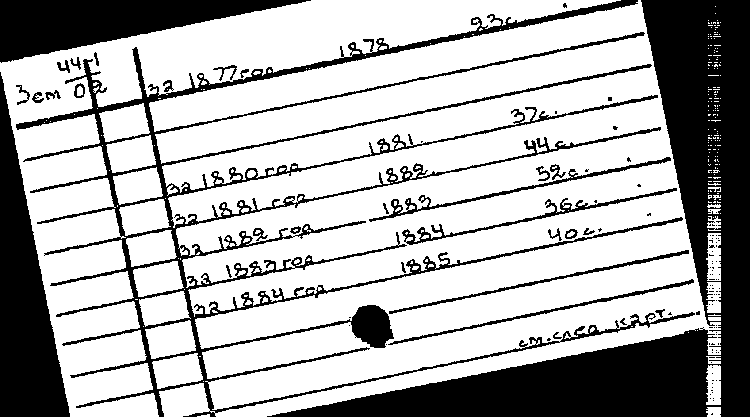 44-1
Зem 02
за 1877 год 1878. 23с.
за 1880 год 1881. 37с.
за 1881 год 1882. 44с.
за 1882 год 1883. 52с.
за 1883 год 1884. 36с.
за 1884 год 1885. 40с.
см. след карт.